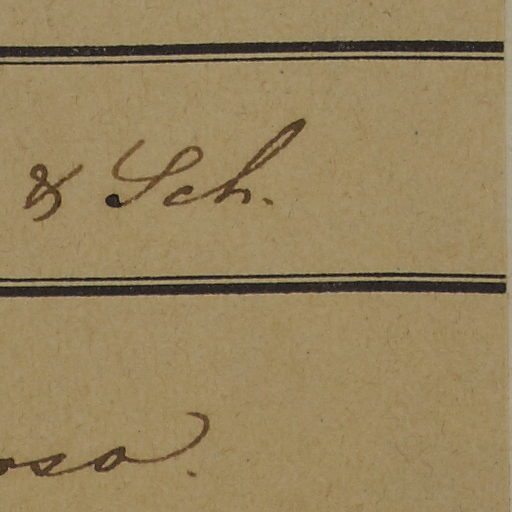 & Sch.
osa.